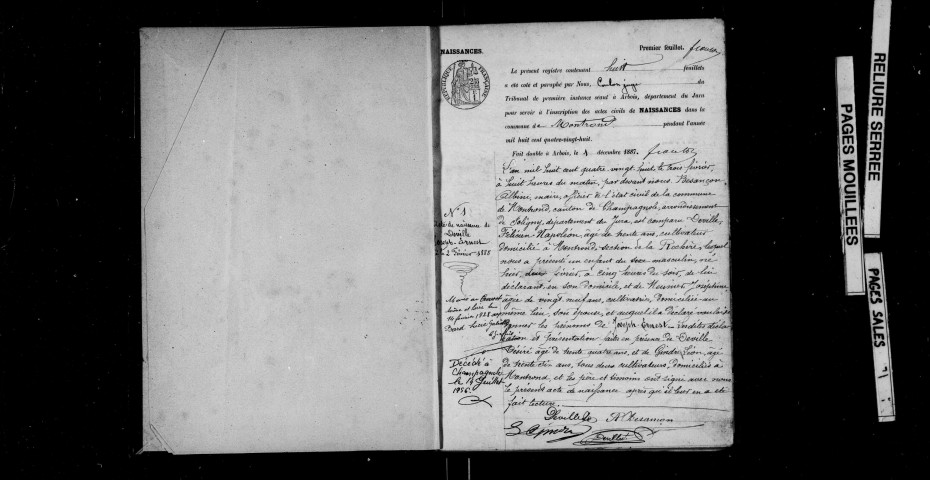 NAISSANCES.
Premier feuillet.
RÉPUBLIQUE FRANÇAISE
Le présent registre contenant huit feuillets
a été coté et paraphé par Nous, juge du
Tribunal de première instance séant à Arbois, département du Jura
pour servir à l'inscription des actes civils de NAISSANCES dans la
commune de Montrond pendant l'année
mil huit cent quatre-vingt-huit.
Fait double à Arbois, le décembre 1887.
L'an mil huit cent quatre vingt huit le trois février,
à huit heures du matin, par devant nous Besançon
Albin, maire, officier de l'état civil de la commune
de Montrond, canton de Champagnole, arrondissement
de Poligny, département du Jura, est comparu Deville,
Félicien Napoléon, âgé de trente ans, cultivateur
domicilié à Montrond, section de la lequel
nous a présenté un enfant du sexe masculin, né
hier, deux février, à cinq heures du soir, de lui
déclarant, en son domicile, et de Meunier Joséphine
âgée de vingt neuf ans, cultivatrice, domiciliée au
même lieu, son épouse, et auquel il a déclaré vouloir
donner les prénoms de Joseph Ernest. Lesdites décla-
ration et présentation faites en présence de Deville
Désiré âgé de trente quatre ans, et de Léon, âgé
de trente ans, tous deux cultivateurs, domiciliés à
Montrond, et les père et témoins ont signé avec nous
le présent acte de naissance après qu'il leur en a été
fait lecture.
Deville A. Besançon
Deville
N° 1
Acte de naissance de
Deville
Joseph Ernest
2 Février 1888
Marié à
14 février 1928
Décédé à
Champagnole
le 14 Juillet
1956.
RELIURE SERREE
PAGES MOUILLEES
PAGES SALES